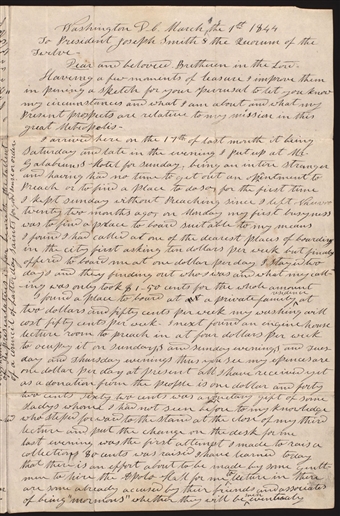 Washington D. C. March the 1st 1844
To President Joseph Smith & the Quorum of the
Twelve -
Dear and beloved Brethren in the Lord -
Having a few moments of leasure I improve them
in pening a sketch for your perusal to let you know
my circumstances and what I am about and what my
Present prospects are relative to my mission in this
great Metropolis -
I arrived here on the 17th of last month it being
Saturday and late in the evening I put up at Mr
Galabruns Hotel for sunday, being an intire stranger
and having had no time to get out an apointment to
Preach or to find a place to do so, for the first time
I kept sunday without Preaching since I left Nauvoo
twenty two months ago, on Monday my first busyness
was to find a place to board suitable to my means
I found I had called at one of the dearest places of boarding
in the city first asking ten dollars per week but finaly
offered to board me at one dollar per day I stayed two
days and they finding out who I was and what my call-
ing was only took $1.50 cents for the whole amount
I found a place to board at a private family at
two dollars and fifty cents per week my washing will
cost fifty cents per week - I next found an engine house
lecture room to preach in at four dollars per week
to ocupy it on sundays and sunday evenings and Tues
day and thursday evenings thus you see my expences are
one dollar per day at present all I have received yet
as a donation from the people is one dollar and forty
two cents Sixty two cents was a gift of some
Ladys whom I had not seen before to my knowledge
who stept forward to the stand at the close of my third
lecture and put the change on the desk for me
last evening was the first attempt I made to rais a
collection 80 cents was raised I have learned today
that there is an effort about to be made by some gentle-
men to hire the Apolo Hall for me to lecture in there
are some already acused by their friends and associates
of being "mormons" whether they will be eventualy